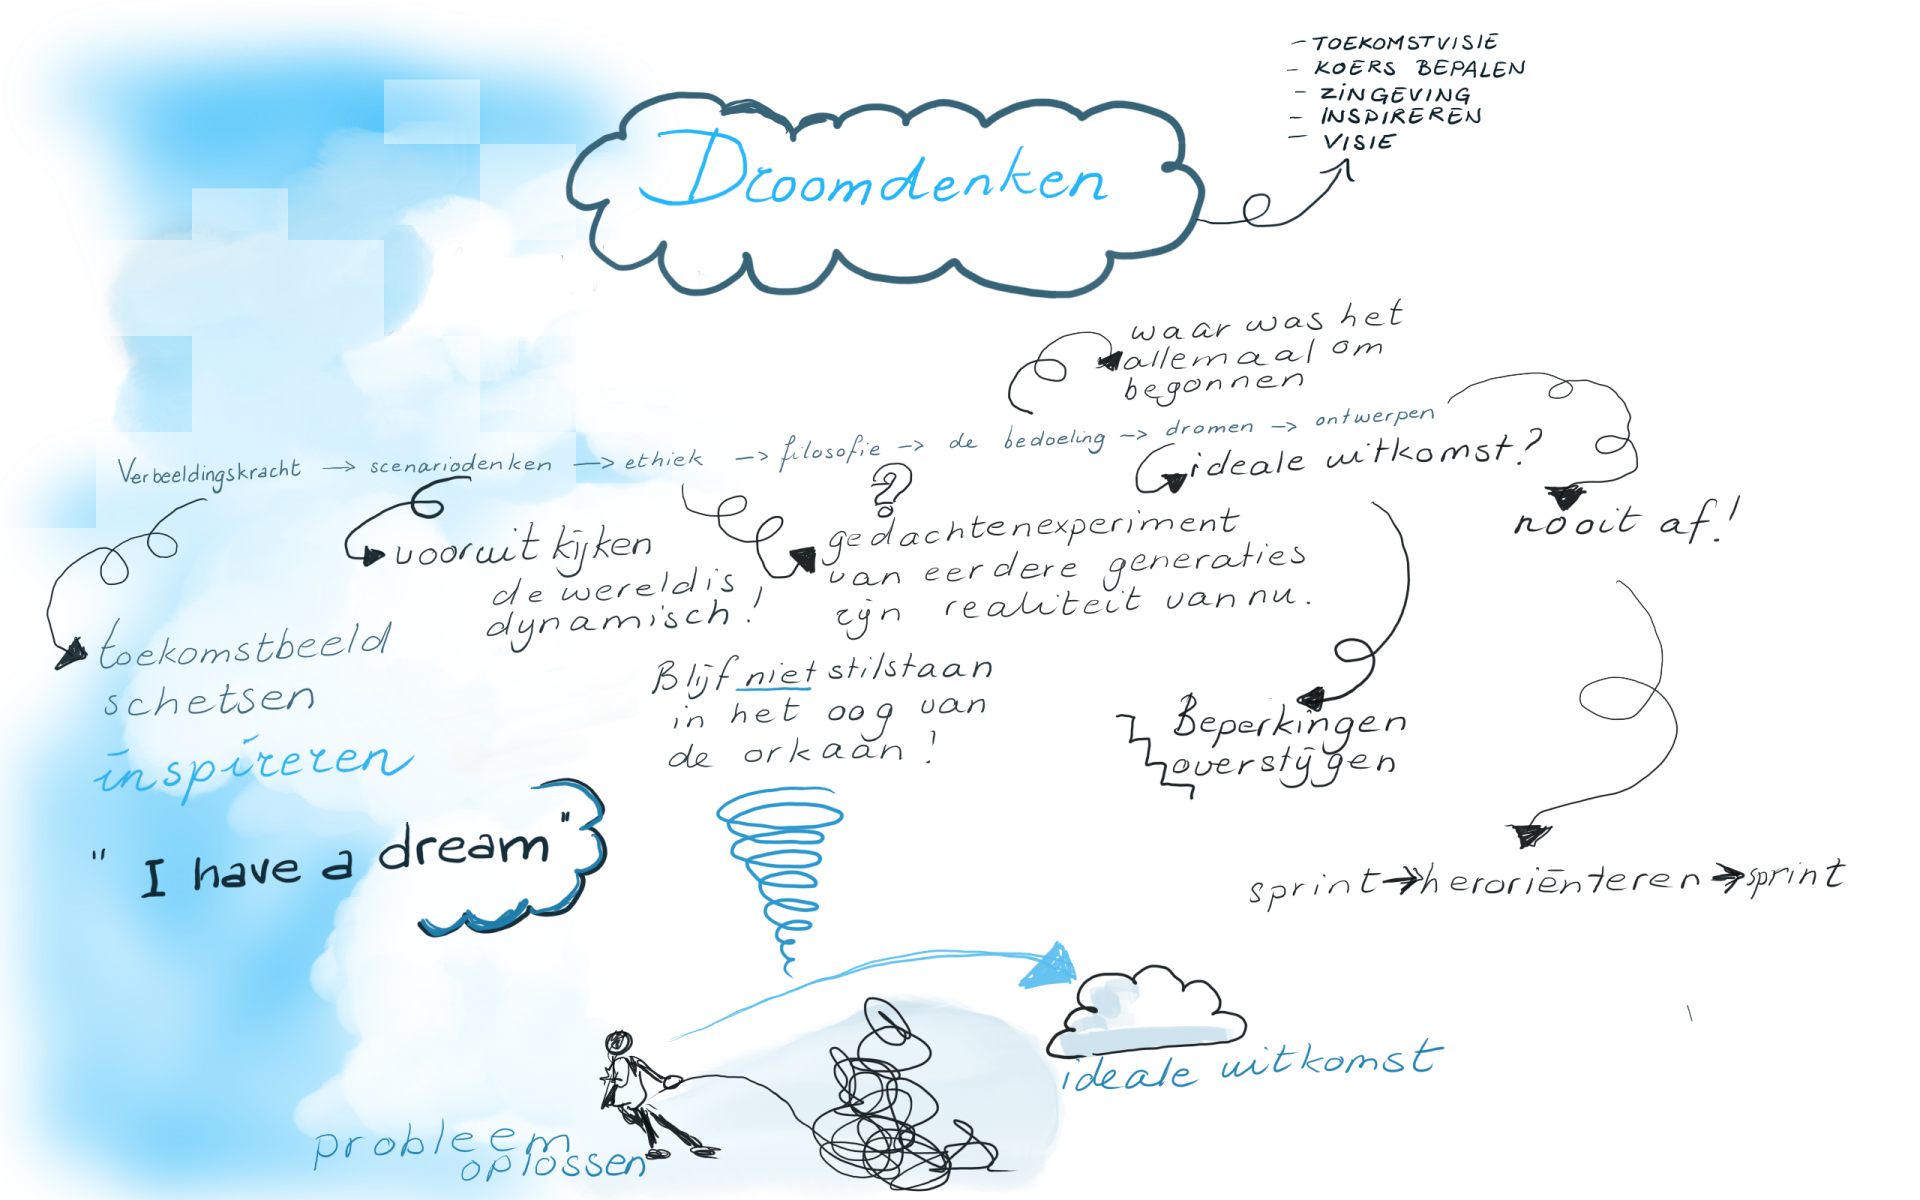 - TOEKOMSTVISIE
- KOERS BEPALEN
- ZINGEVING
- INSPIREREN
- VISIE
Droomdenken
waar was het
allemaal om
begonnen
Verbeeldingskracht → scenariodenken → ethiek → filosofie → de bedoeling → dromen → ontwerpen
ideale uitkomst?
?
nooit af!
vooruit kijken
de wereld is
dynamisch!
gedachtenexperiment
van eerdere generaties
zijn realiteit van nu.
toekomstbeeld
schetsen
inspireren
Blijf niet stilstaan
in het oog van
de orkaan!
Beperkingen
overstijgen
"I have a dream"
sprint → heroriënteren → sprint
ideale uitkomst
probleem
oplossen